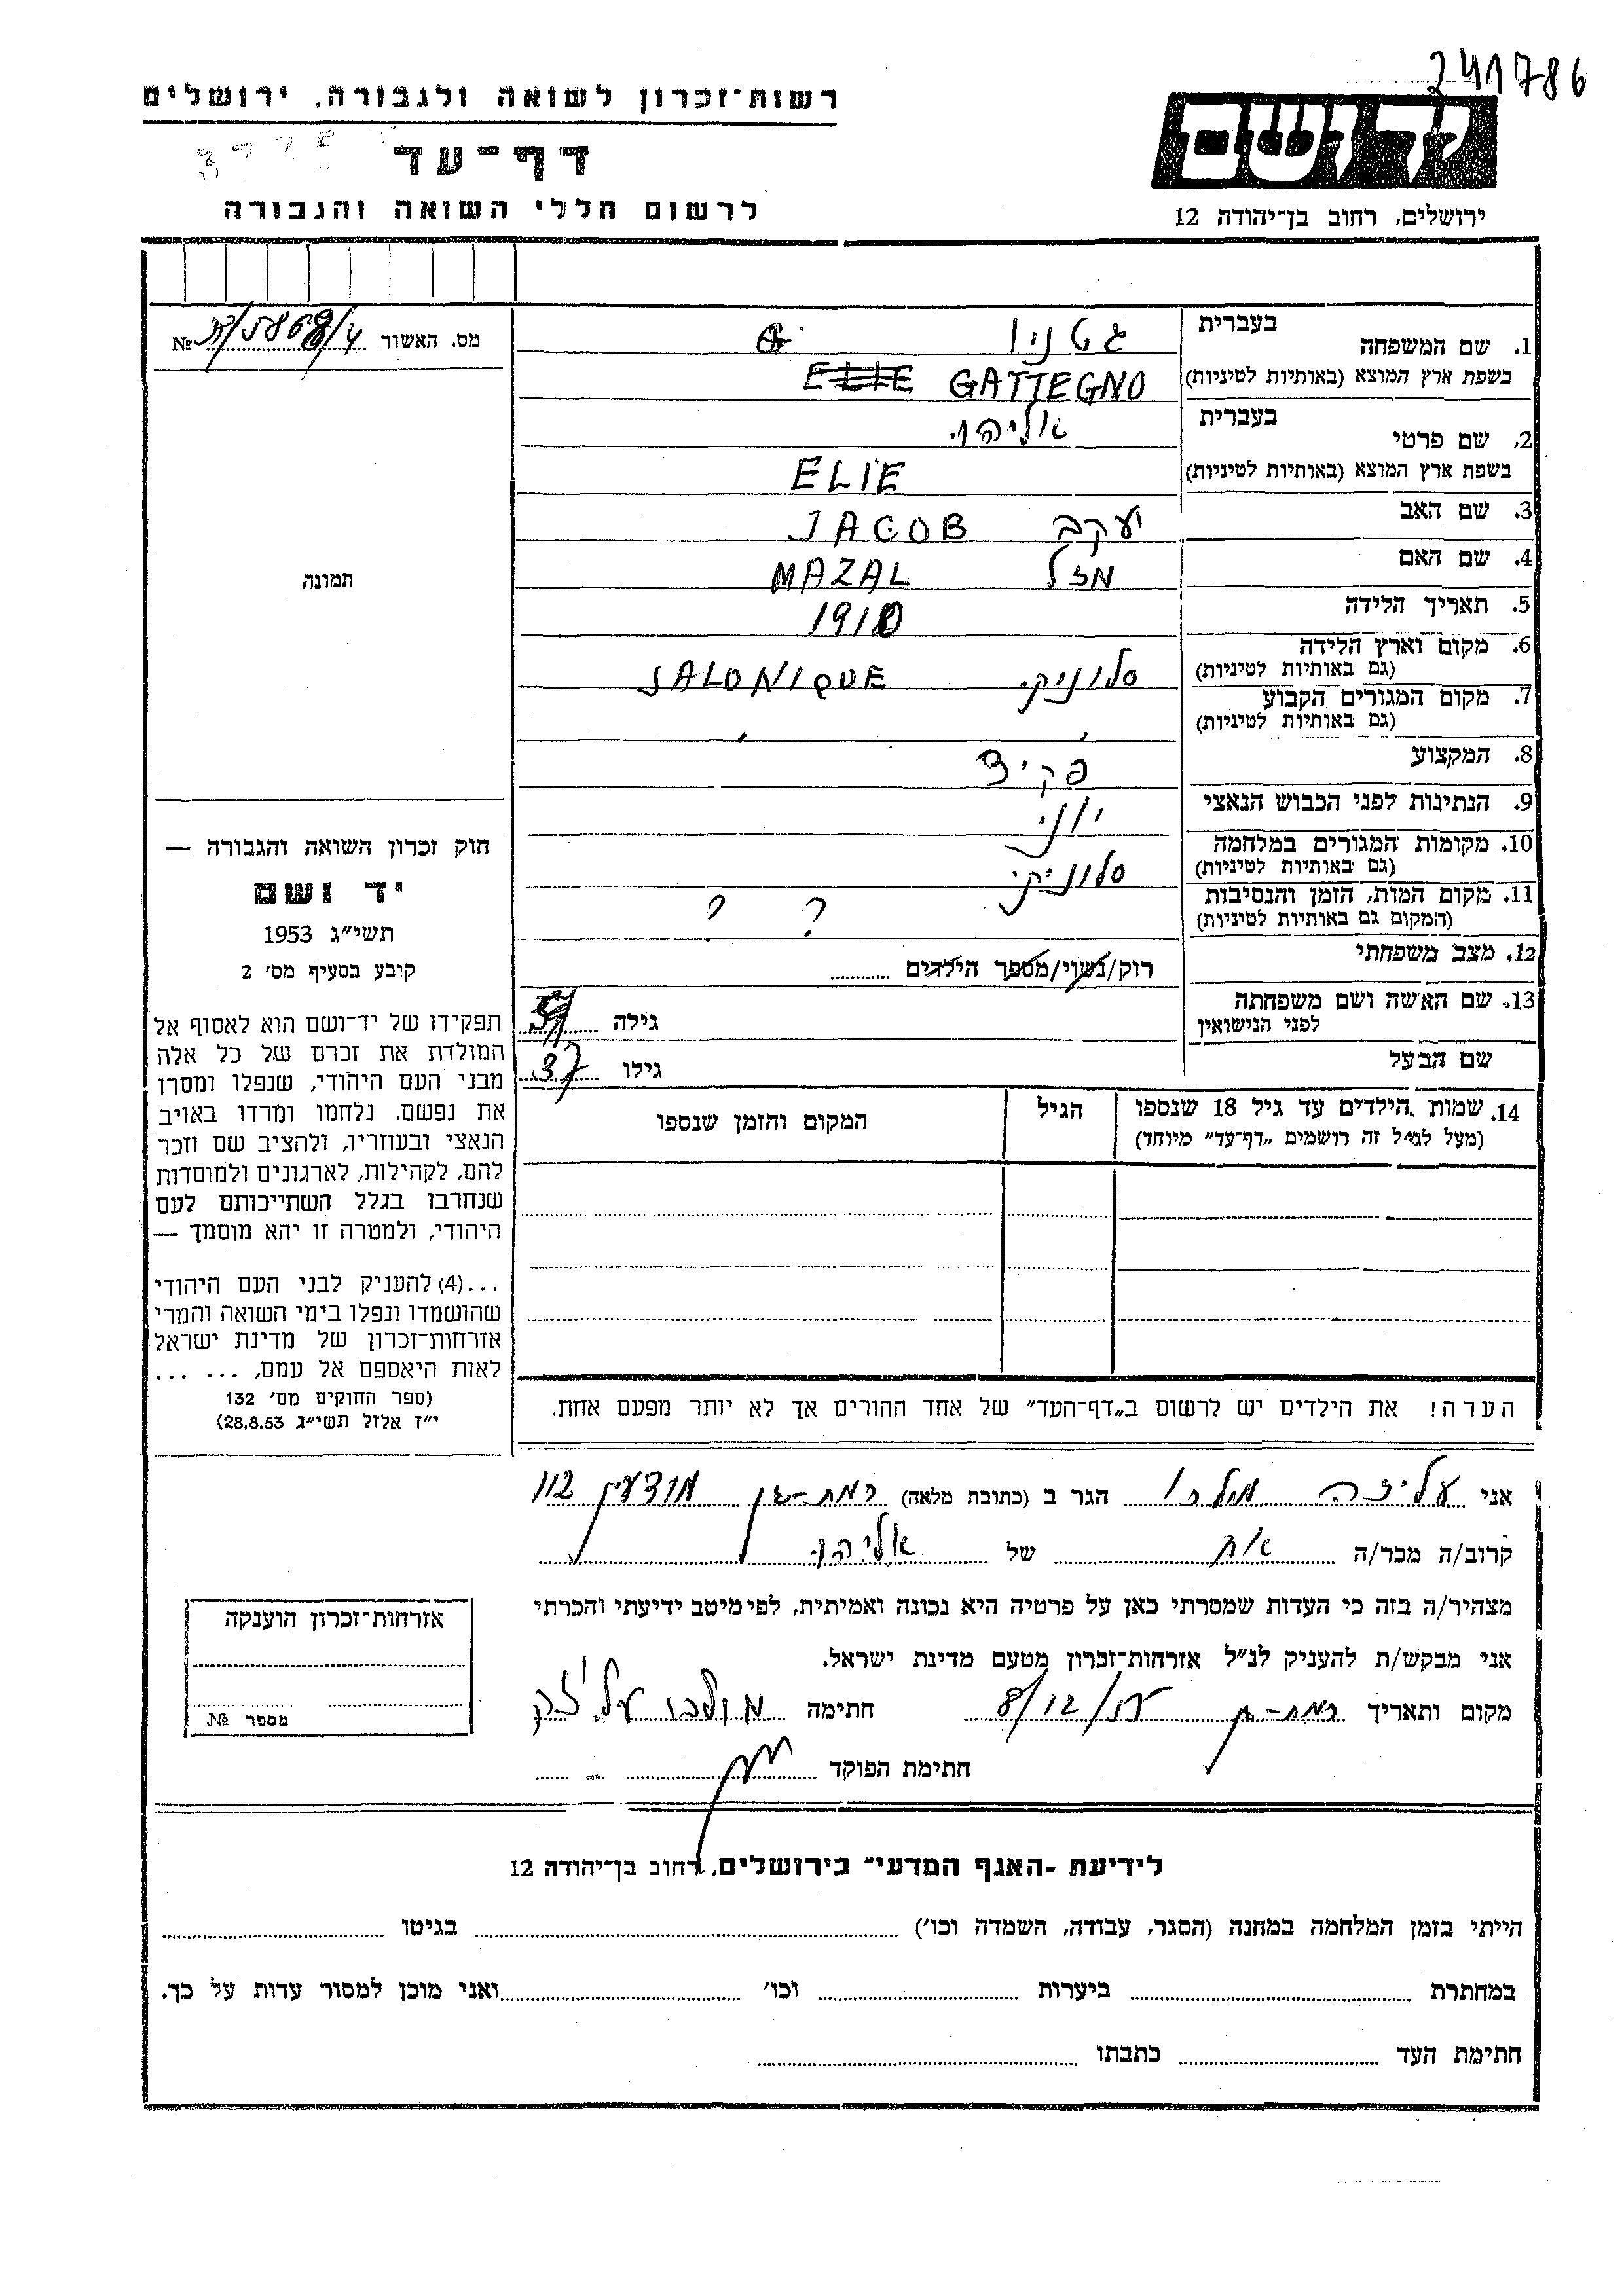 241786
רשות־זכרון לשואה ולגבורה, ירושלים
דף־עד
לרשום חללי השואה והגבורה
יד ושם
ירושלים, רחוב בן־יהודה 12
מס. האשור №
1. שם המשפחה בעברית גטניו
בשפת ארץ המוצא (באותיות לטיניות) GATTEGNO ELIE
2. שם פרטי בעברית אליהו
בשפת ארץ המוצא (באותיות לטיניות) ELIE
3. שם האב יעקב JACOB
4. שם האם מזל MAZAL
5. תאריך הלידה 1910
6. מקום וארץ הלידה
(גם באותיות לטיניות) סלוניקי SALONIQUE
7. מקום המגורים הקבוע
(גם באותיות לטיניות) " "
8. המקצוע פקיד
9. הנתינות לפני הכבוש הנאצי יווני
10. מקומות המגורים במלחמה
(גם באותיות לטיניות) סלוניקי
11. מקום המות, הזמן והנסיבות
(המקום גם באותיות לטיניות) ? ?
12. מצב משפחתי רוק/נשוי/מספר הילדים
13. שם האשה ושם משפחתה
לפני הנישואין גילה
שם הבעל גילו 37
14. שמות הילדים עד גיל 18 שנספו
(מעל לגיל זה רושמים „דף־עד" מיוחד)
הגיל
המקום והזמן שנספו
הערה! את הילדים יש לרשום ב„דף־העד" של אחד ההורים אך לא יותר מפעם אחת.
תמונה
חוק זכרון השואה והגבורה —
יד ושם
תשי״ג 1953
קובע בסעיף מס׳ 2
תפקידו של יד־ושם הוא לאסוף אל
המולדת את זכרם של כל אלה
מבני העם היהודי, שנפלו ומסרו
את נפשם. נלחמו ומרדו באויב
הנאצי ובעוזריו, ולהציב שם וזכר
להם, לקהילות, לארגונים ולמוסדות
שנחרבו בגלל השתייכותם לעם
היהודי, ולמטרה זו יהא מוסמך —
...(4) להעניק לבני העם היהודי
שהושמדו ונפלו בימי השואה והמרי
אזרחות־זכרון של מדינת ישראל
לאות היאספם אל עמם, ... ...
(ספר החוקים מס׳ 132
י״ז אלול תשי״ג 28.8.53)
אני עליזה מולכו הגר ב (כתובת מלאה) רמת-גן מודעין 112
קרוב/ה מכר/ה אח של אליהו
מצהיר/ה בזה כי העדות שמסרתי כאן על פרטיה היא נכונה ואמיתית, לפי מיטב ידיעתי והכרתי
אני מבקש/ת להעניק לנ״ל אזרחות־זכרון מטעם מדינת ישראל.
מקום ותאריך רמת-גן 8/12/ חתימה מולכו עליזה
חתימת הפוקד
אזרחות־זכרון הוענקה
מספר №
לידיעת -האגף המדעי״ בירושלים, רחוב בן־יהודה 12
הייתי בזמן המלחמה במחנה (הסגר, עבודה, השמדה וכו׳) בגיטו
במחתרת ביערות וכו׳ ואני מוכן למסור עדות על כך.
חתימת העד כתבתו